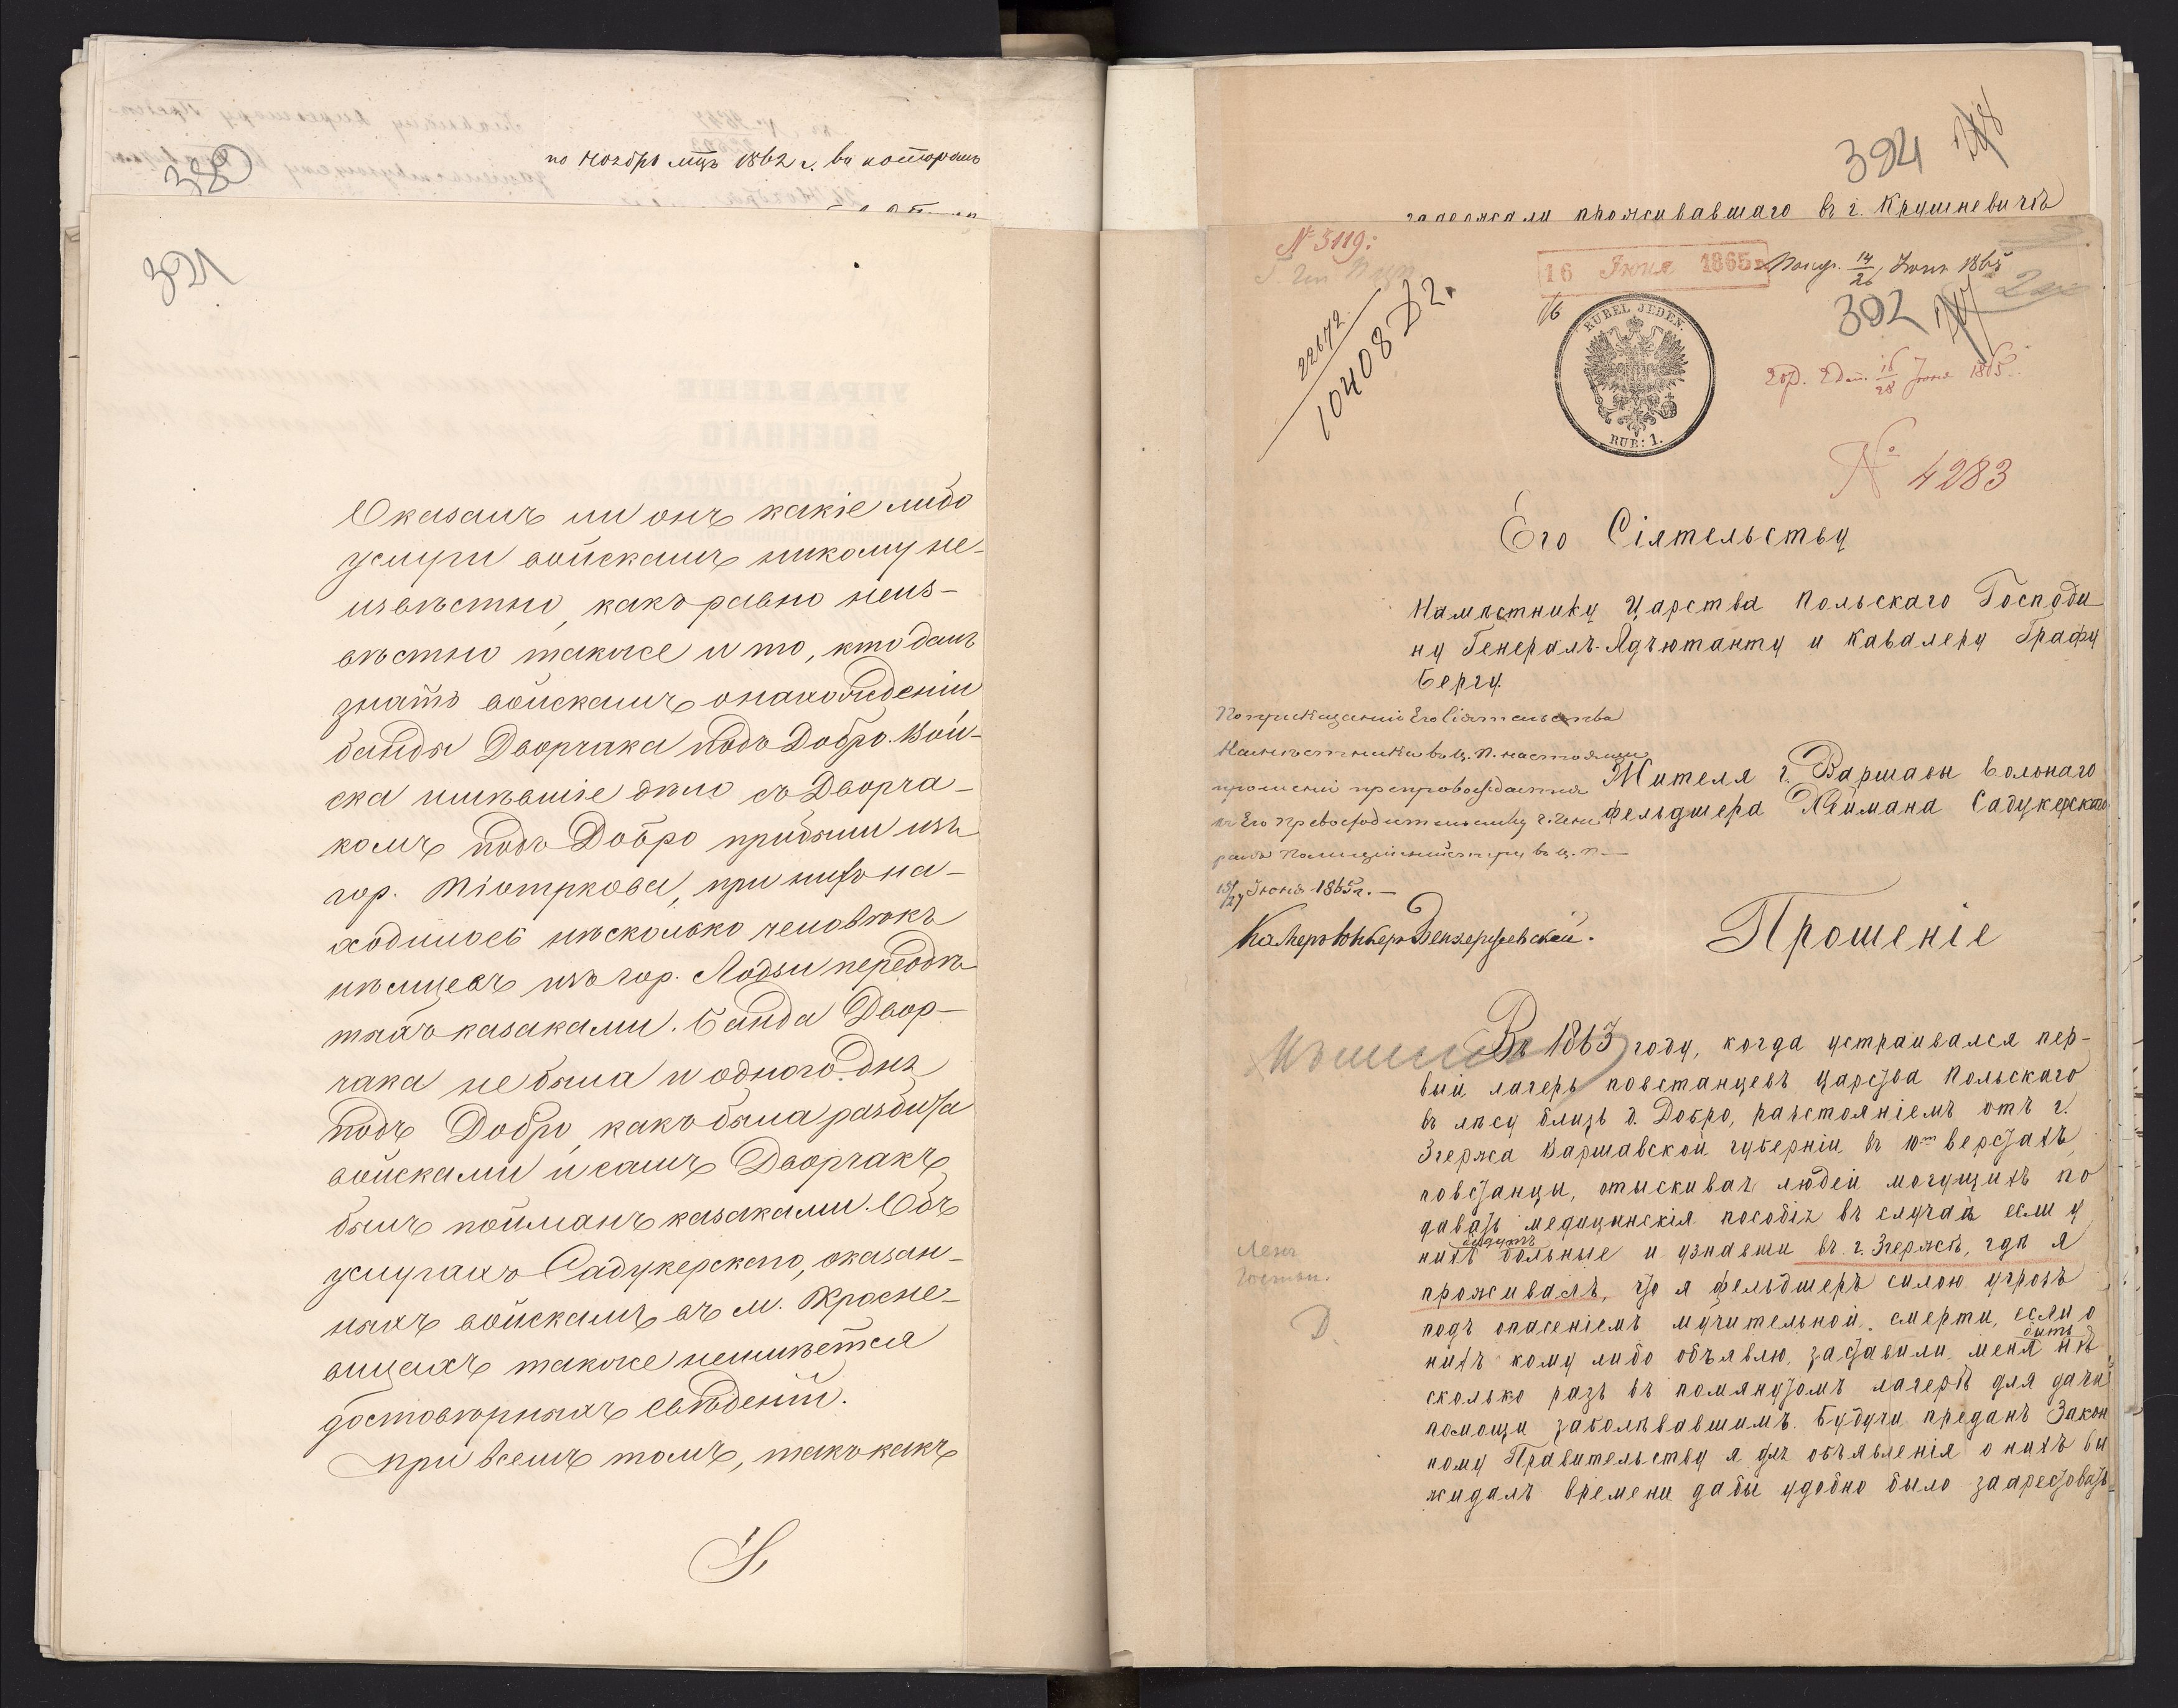 по ноябрь мцъ 1862 г. въ которомъ
380
391
Оказалъ ли онъ какіе либо
услуги войскамъ никому не-
извѣстно, какъ равно неиз-
вѣстно также и то, кто далъ
знать войскамъ о нахожденіи
банды Дворчака подъ Добро. Вой-
ска имѣвшіе дѣло съ Дворча-
комъ подъ Добро прибыли изъ
гор. Піотркова, при нихъ на-
ходилось нѣсколько человѣкъ
нѣмцевъ изъ гор. Лодзи переодѣ-
тыхъ казаками. Банда Двор-
чака не была и одного дня
подъ Добро, какъ была разбита
войсками и самъ Дворчакъ
былъ пойманъ казаками. Объ
услугахъ Садукерскаго, оказан-
ныхъ войскамъ въ м. Кросне-
вицахъ также неимѣется
достовѣрныхъ свѣденій.
При всемъ томъ, такъ какъ
394
задержали проживавшаго въ г. Крушневичѣ
№ 3119:
16 Июня 1865
Получ. 14/26 Іюня 1865
16
392
22672
10408 Д2.
RUBEL JEDEN.
RUB: 1.
16/28 Іюня 1865
№ 4283
Его Сіятельству
Намѣстнику Царства Польскаго Господи
ну Генералъ-Адъютанту и Кавалеру Графу
Бергу.
По приказанію Его Сіятельства
Намѣстника въ Ц. П. настоящее
прошеніе препровождается
къ Его Превосходительству г. Гене
ралъ Полиціймейстеру въ Ц. П.—
15/27 Іюня 1865 г.—
Камеръ Юнкеръ
Жителя г. Варшавы вольнаго
фельдшера Хеймана Садукерскаго
Прошеніе
Въ 1863 году, когда устраивался пер-
вый лагерь повстанцевъ Царства Польскаго
въ лѣсу близь д. Добро, разстояніемъ отъ г.
Згержа Варшавской губерніи въ 10ти верстахъ,
повстанцы, отыскивая людей могущихъ по
давать медицинскія пособія въ случаѣ если у
нихъ будутъ больные и узнавши въ г. Згержѣ, гдѣ я
проживалъ, что я фельдшеръ силою угрозъ
подъ опасеніемъ мучительной смерти, если о
нихъ кому либо объявлю, заставили меня быть нѣ
сколько разъ въ помянутомъ лагерѣ для дачи
помощи заболѣвавшимъ. Будучи преданъ Закон
ному Правительству я для объявленія о нихъ вы
жидалъ времени дабы удобно было заарестовать